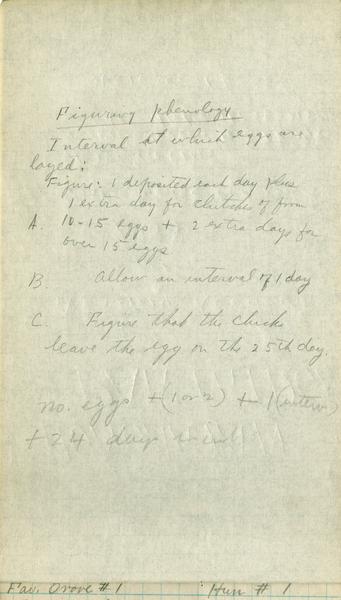 Figuring phenology
Interval at which eggs are
layed:
Figure: 1 deposited each day plus
1 extra day for clutches of from
A. 10-15 eggs + 2 extra days for
over 15 eggs
B. Allow an interval of 1 day
C. Figure that the chicks
leave the egg on the 25th day.
no. eggs + (1 or 2) + 1 (interv.)
+ 24 days
Fav. Grove #1 Hun # 1